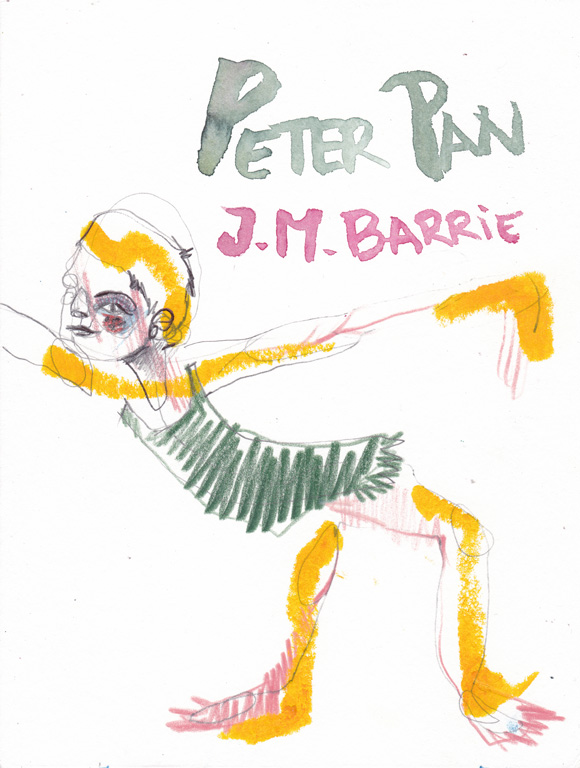 PETER PAN
J.M. BARRiE